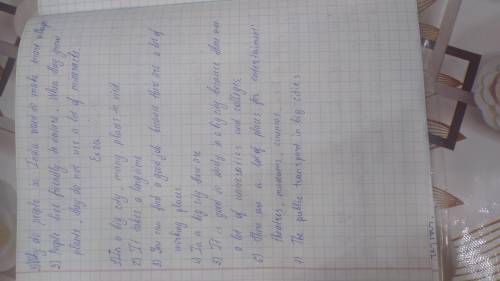 1) Why do people in India want to make more villages
2) People live friendly to nature. When they grow
plants, they do not use a lot of minerals.
Ex 2a
1) In a big city, many places to visit.
2) It takes a long time
3) You can find a good job because there are a lot of
working places.
4) In a big city there are
5) It is good to study in a big city because there are
a lot of universities and colleges.
6) There are a lot of places for entertainment:
theatres, museums, cinemas.
7) The public transport in big cities